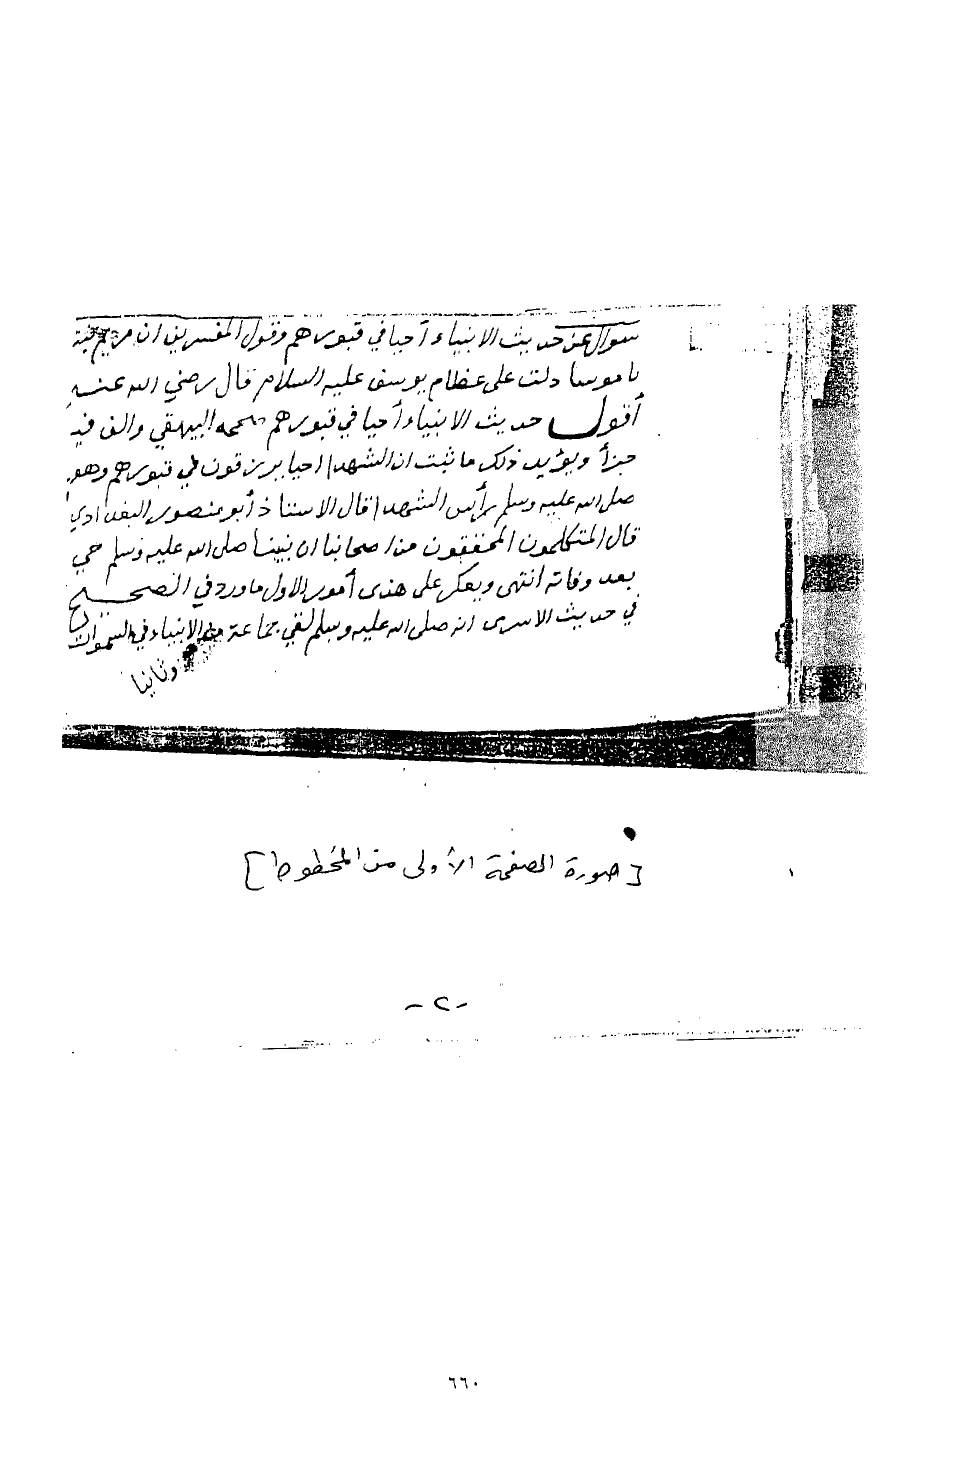 سوال عن حديث الانبياء أحيا في قبورهم وقول المفسرين ان مريم
ناموسا دلت على عظام يوسف عليه السلام قال رضي الله عنه
أقول حديث الانبياء أحيا في قبورهم صححه البيهقي والف فيه
جزأ ويؤيد ذلك ما ثبت ان الشهدا احيا يرزقون في قبورهم وهو
صلى الله عليه وسلم رأس الشهدا قال الاستاذ أبو منصور البغدادي
قال المتكلمون المحققون من اصحابنا ان نبينا صلى الله عليه وسلم حي
بعد وفاته انتهى ويعكر على هذى أمور الاول ما ورد في الصحيح
في حديث الاسرى انه صلى الله عليه وسلم لقي جماعة من الانبياء في السموات
وثانيا
[صورة الصفحة الأولى من المخطوط]
١
-٢-
٦٦٠